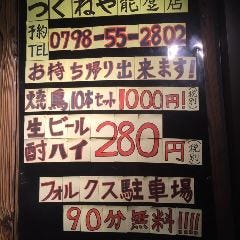 つくねや能登店
予約TEL 0798-55-2802
お持ち帰り出来ます!
焼鳥10本セット1000円!(税別)
生ビール
酎ハイ 280円(税別)
フォルクス駐車場
90分無料!!!!